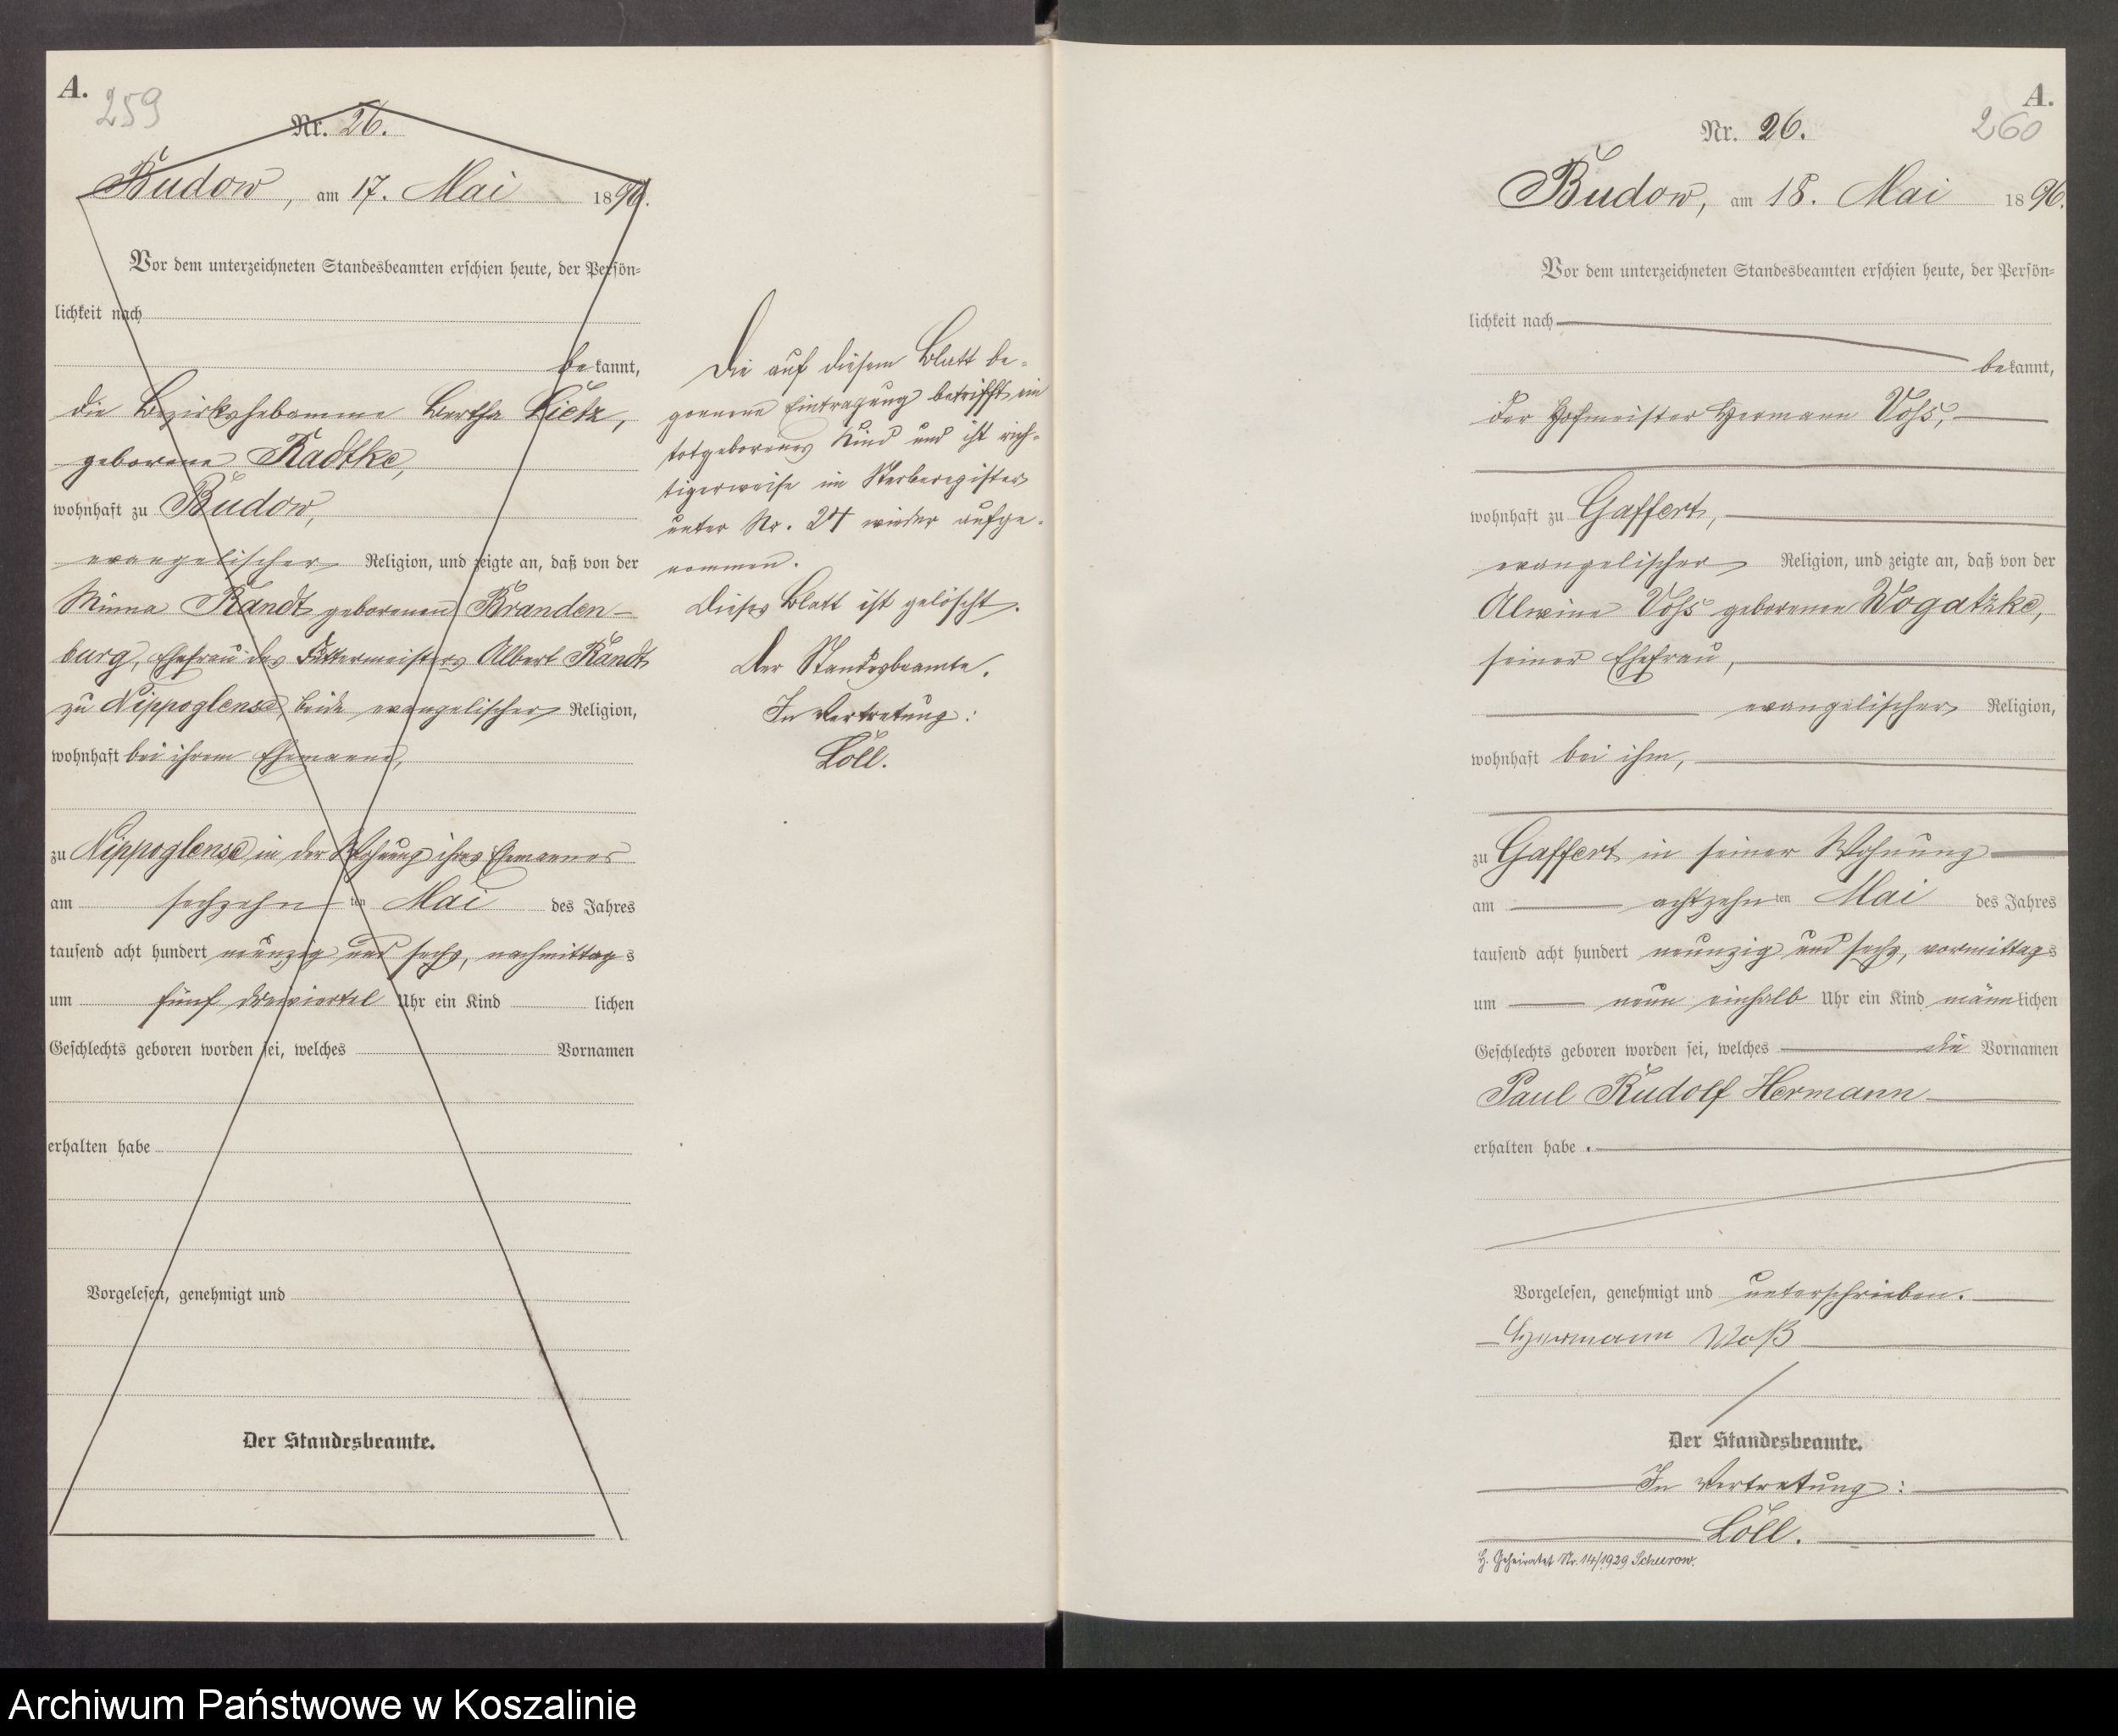 A.
259
Nr. 26.
Budow, am 17. Mai 1896.
Vor dem unterzeichneten Standesbeamten erschien heute, der Persön-
lichkeit nach
bekannt,
die Bezirkshebamme Bertha Dietz,
geborene Radtke,
wohnhaft zu Budow,
evangelischer Religion, und zeigte an, daß von der
Minna Randt geborenen Branden-
burg, Ehefrau des Futtermeisters Albert Randt
zu Nippoglense, beide evangelischer Religion,
wohnhaft bei ihrem Ehemanne,
zu Nippoglense in der Wohnung ihres Ehemannes
am sechzehnten Mai des Jahres
tausend acht hundert neunzig und sechs, nachmittags
um fünf dreiviertel Uhr ein Kind lichen
Geschlechts geboren worden sei, welches Vornamen
erhalten habe
Vorgelesen, genehmigt und
Der Standesbeamte.
Die auf diesem Blatt be-
gonnene Eintragung betrifft ein
totgeborenes Kind und ist rich-
tigerweise im Sterberegister
unter Nr. 24 wieder aufge-
nommen.
Dieses Blatt ist gelöscht.
Der Standesbeamte.
In Vertretung:
Löll.
A.
260
Nr. 26.
Budow, am 18. Mai 1896.
Vor dem unterzeichneten Standesbeamten erschien heute, der Persön-
lichkeit nach
bekannt,
der Hofmeister Hermann Voß,
wohnhaft zu Gaffert,
evangelischer Religion, und zeigte an, daß von der
Alwine Voß geborene Wogatzke,
seiner Ehefrau,
evangelischer Religion,
wohnhaft bei ihm,
zu Gaffert in seiner Wohnung
am achtzehnten Mai des Jahres
tausend acht hundert neunzig und sechs, vormittags
um neun einhalb Uhr ein Kind männlichen
Geschlechts geboren worden sei, welches die Vornamen
Paul Rudolf Hermann
erhalten habe.
Vorgelesen, genehmigt und unterschrieben.
Hermann Voß
Der Standesbeamte.
In Vertretung:
Löll.
H. Geheiratet Nr. 14/1929 Schurow.
Archiwum Państwowe w Koszalinie